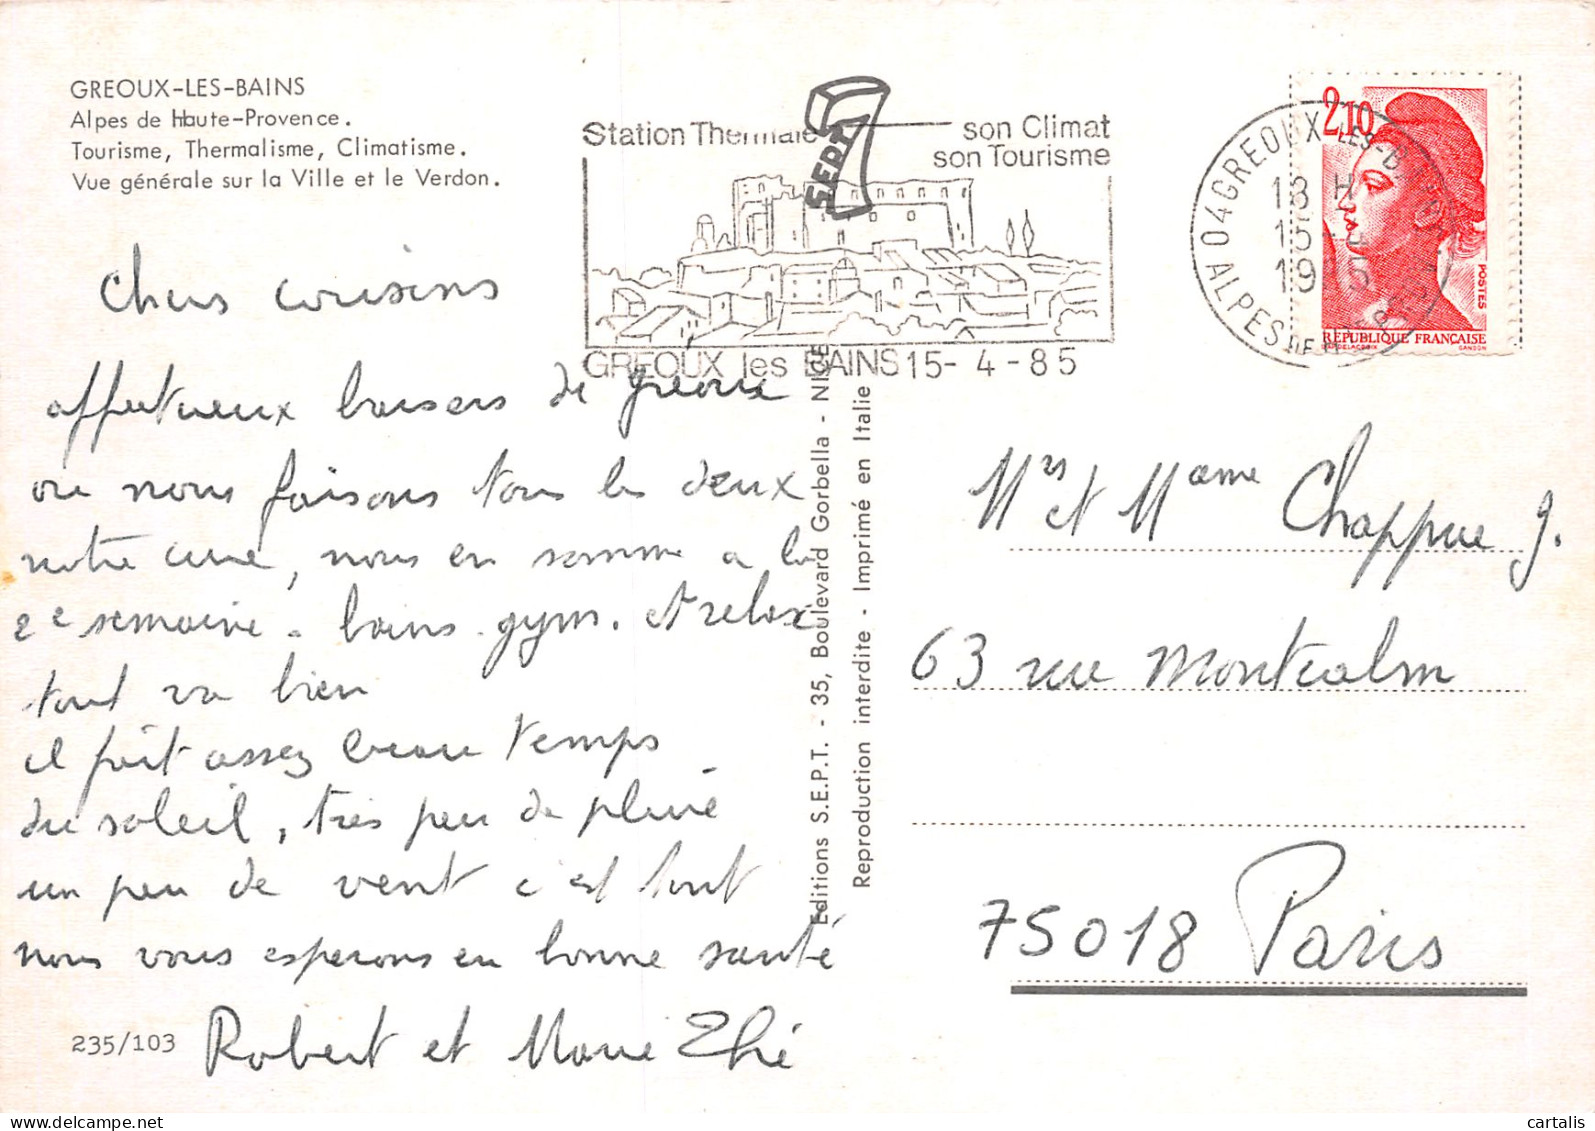 GREOUX-LES-BAINS
Alpes de Haute-Provence.
Tourisme, Thermalisme, Climatisme.
Vue générale sur la Ville et le Verdon.
Station Thermale
son Climat
son Tourisme
SEPT
GREOUX les BAINS 15-4-85
04 GREOUX-LES-BAINS
13 H
15
19
ALPES DE
2,10
POSTES
REPUBLIQUE FRANÇAISE
Chers cousins
affectueux baisers de Gréoux
où nous faisons tous les deux
notre cure, nous en somme a la
2e semaine. bains. gym. et relax
tout va bien
il fait assez beau temps
du soleil, très peu de pluie
un peu de vent c'est tout
nous vous esperons en bonne santé
Robert et Marie
235/103
Editions S.E.P.T. - 35, Boulevard Gorbella - NICE
Reproduction interdite - Imprimé en Italie
Mrs et Mame Chappue J.
63 rue Montcalm
75018 Paris
cartalis